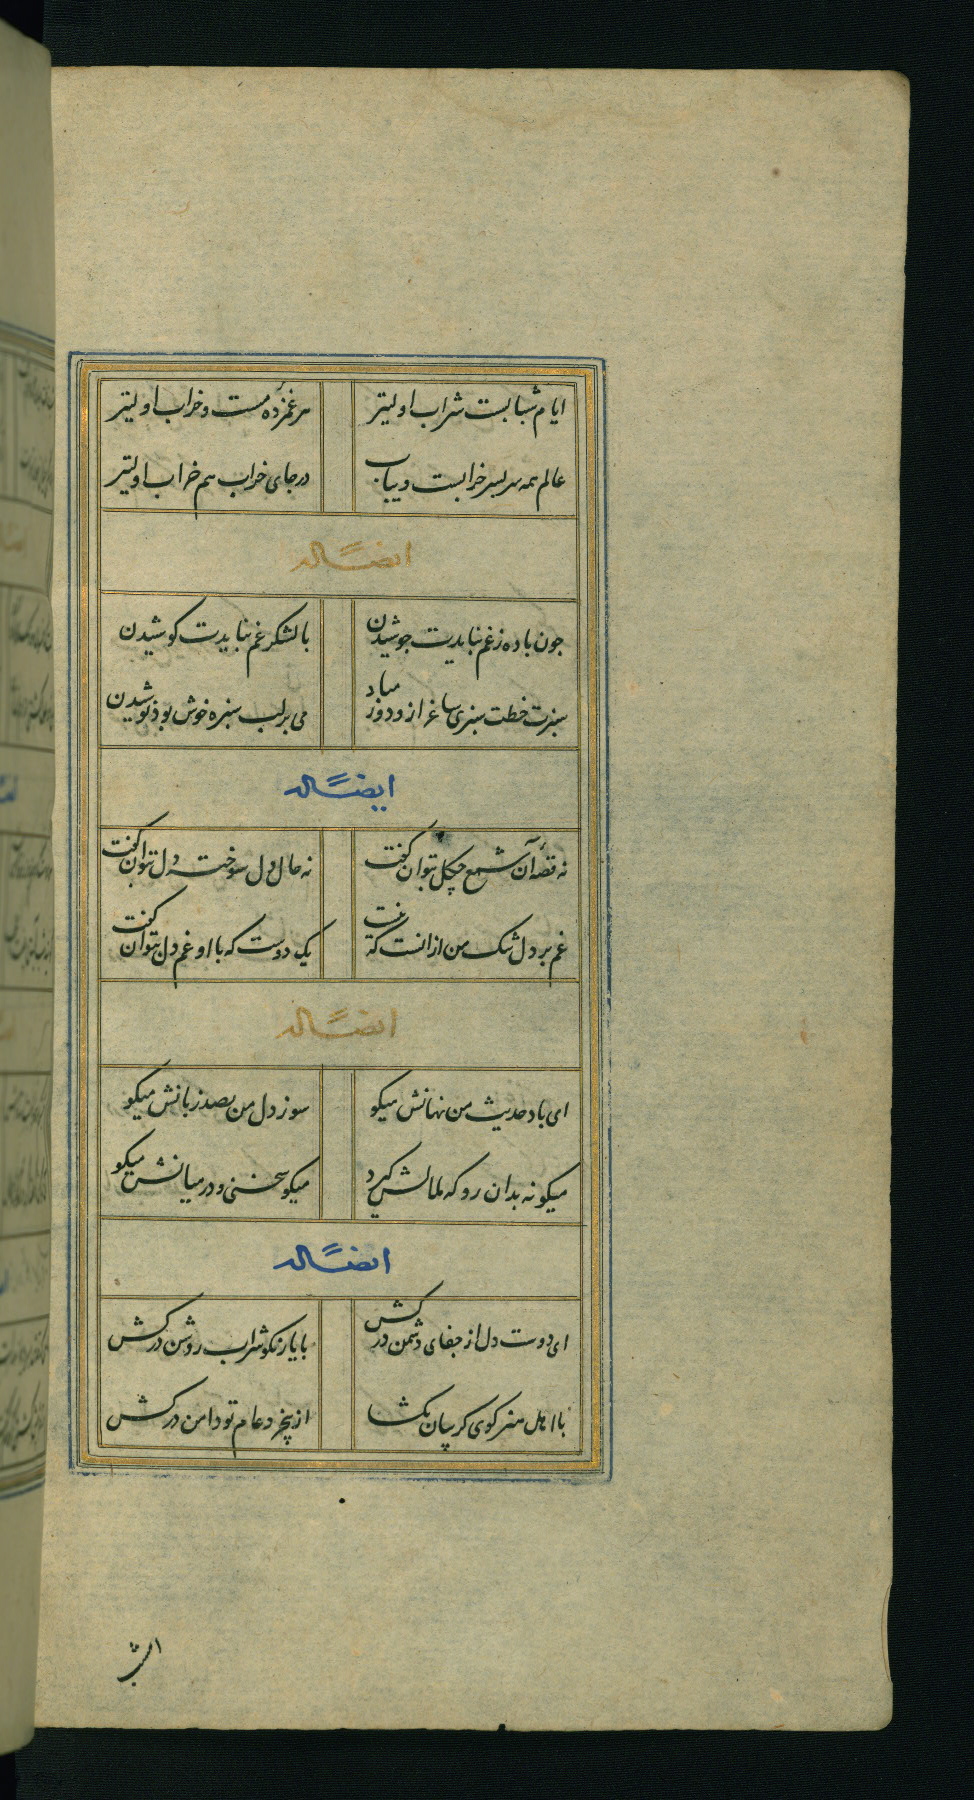 ایام شبابست شراب اولیتر هر غمزده مست و خراب اولیتر
عالم همه سر بسر خرابست و یباب در جای خراب هم خراب اولیتر
ایضًا له
جون باده ز غم نبایدت جوشیدن با لشکر غم نبایدت کوشیدن
سبزت خطت سبزی ساغر ازو دور مباد می بر لب سبزه خوش بوذ نوشیدن
ایضًا له
نه قصهٔ آن شمع چکل بتوان کفت نه حال دل سوخته دل بتوان کفت
غم بر دل تنک من ازانست که نیست یک دوست که با او غم دل بتوان کفت
ایضًا له
ای باد حدیث من نهانش میکو سوز دل من بصد زبانش میکو
میکو نه بدان رو که ملالش کیرد میکو سخنی و در میانش میکو
ایضًا له
ای دوست دل از جفای دشمن درکش با یار نکو شراب روشن درکش
با اهل هنر کوی کریبان بکشا از بیخرد عام تو دامن درکش
امشب